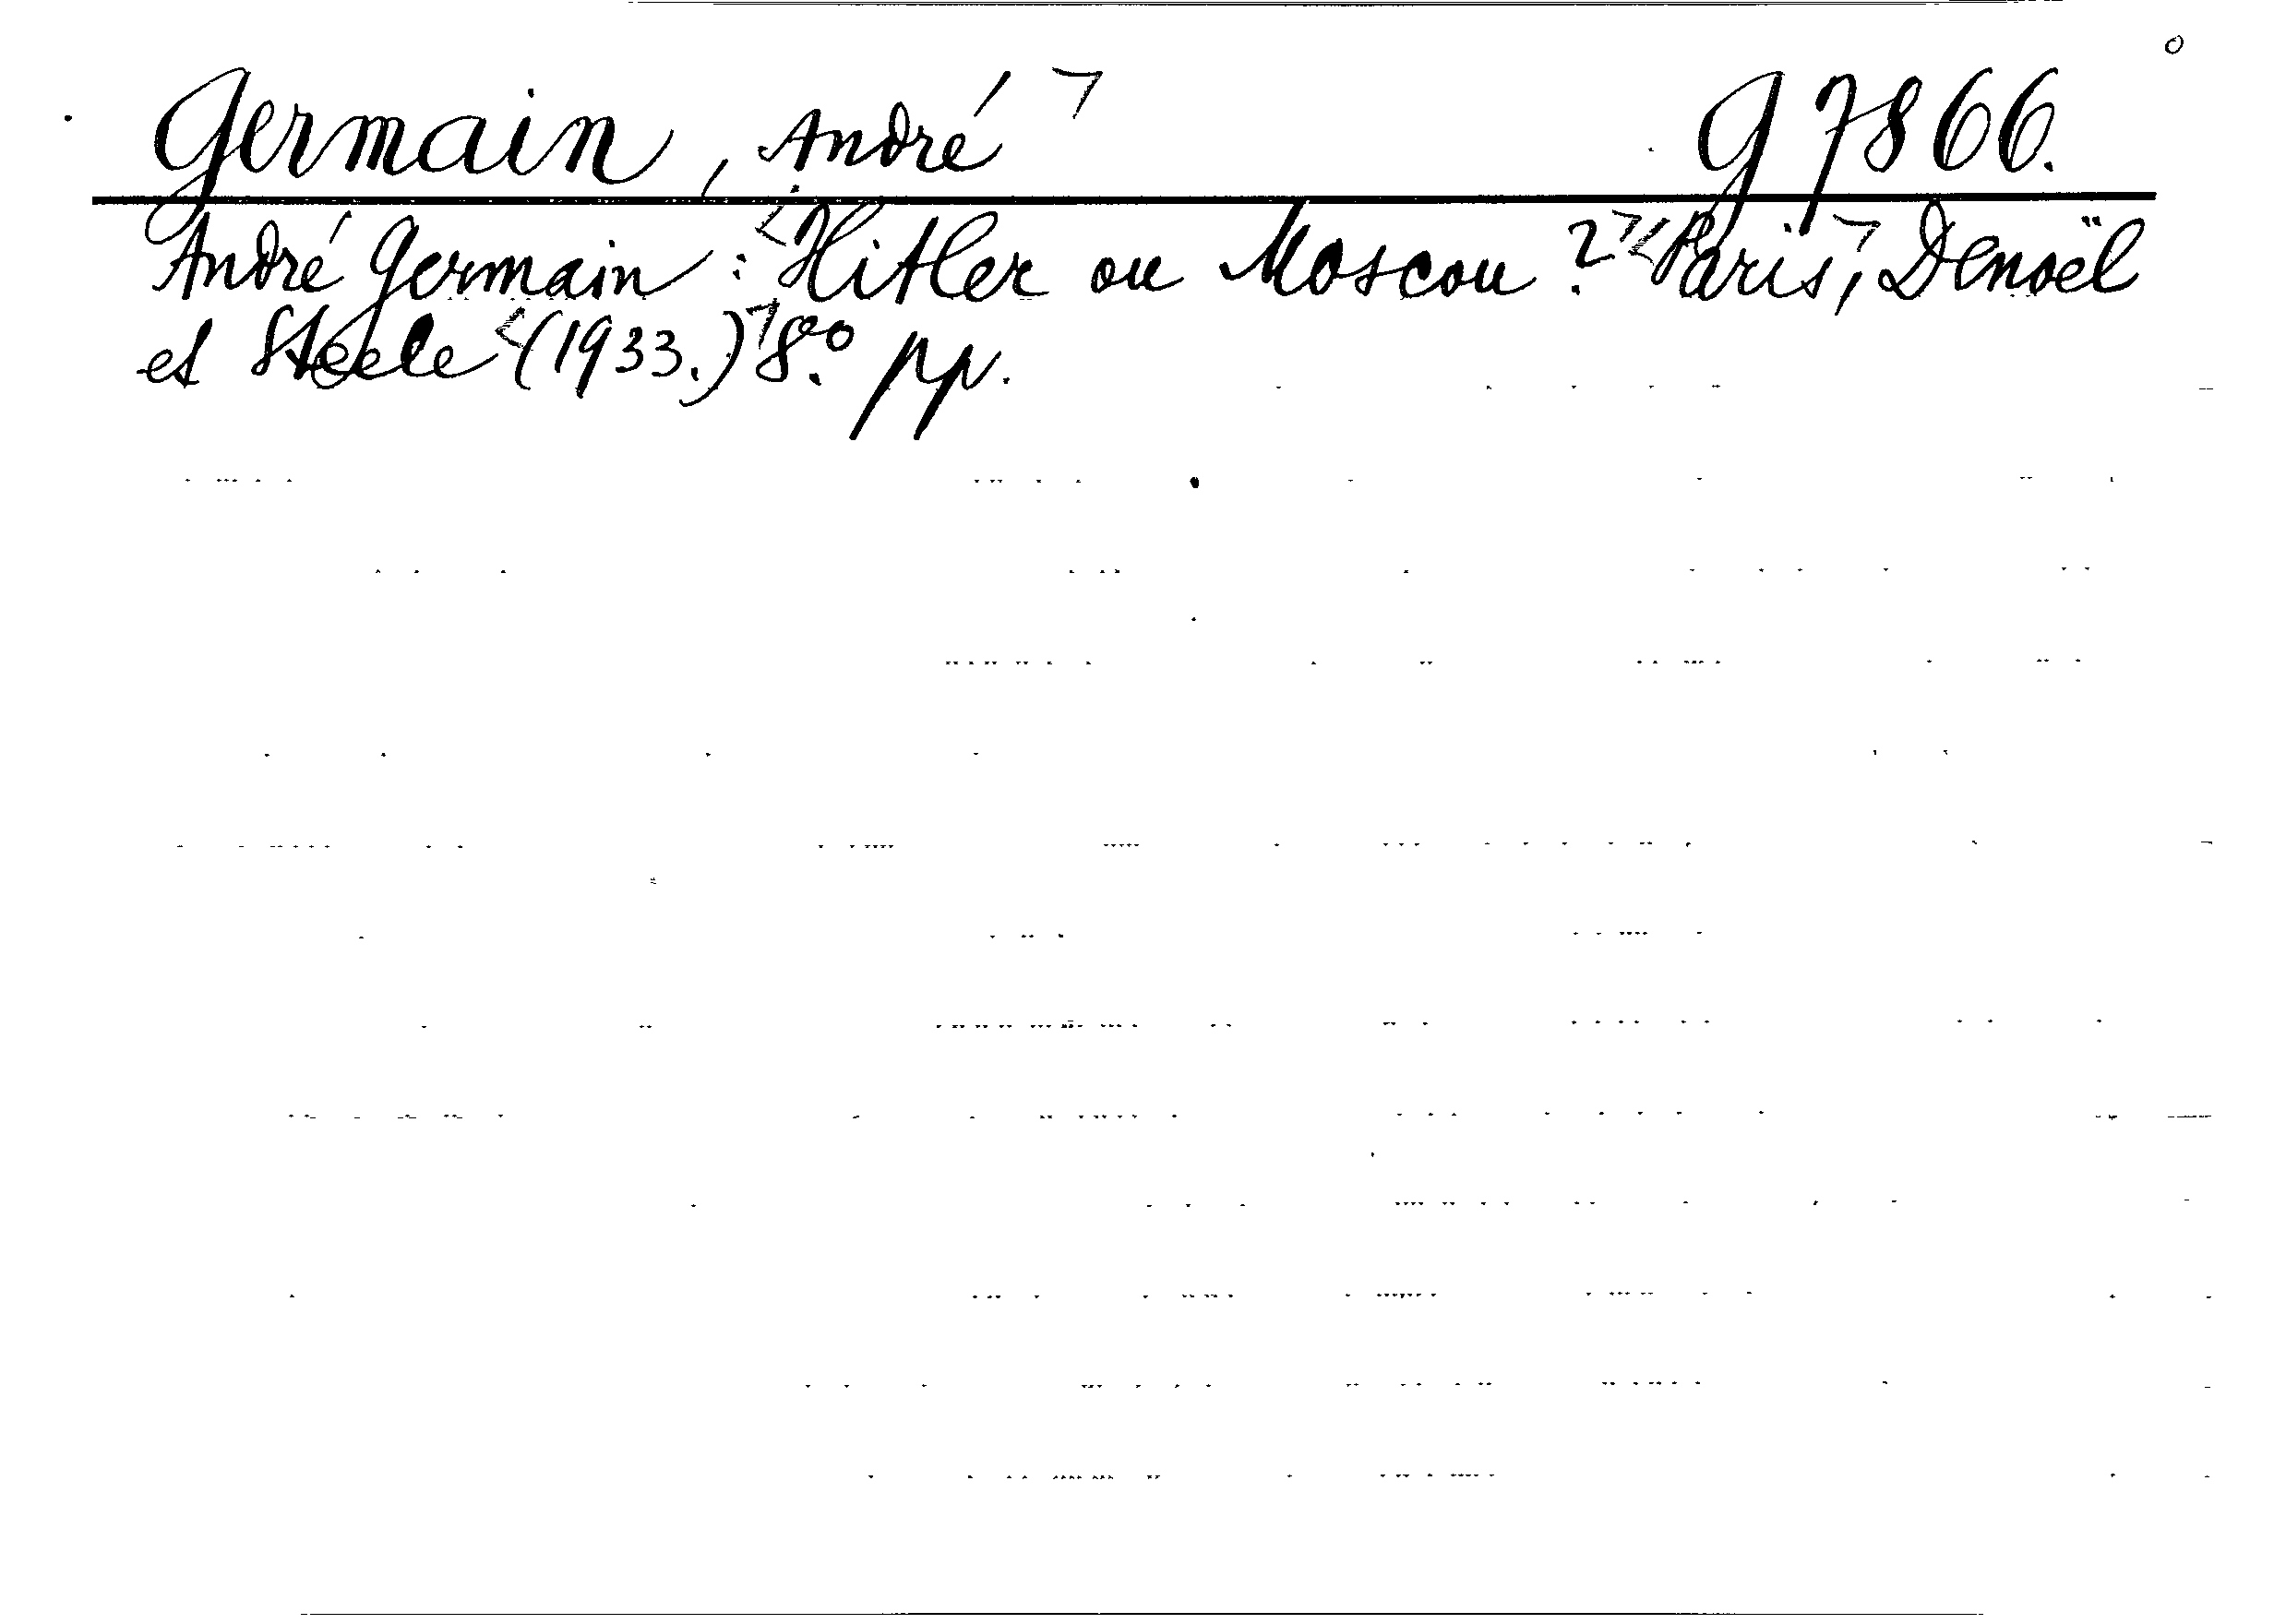 Germain, André G 7866.
André Germain: Hitler ou Moscou? Paris, Denoël
et Steele (1933.) 8.° pp.